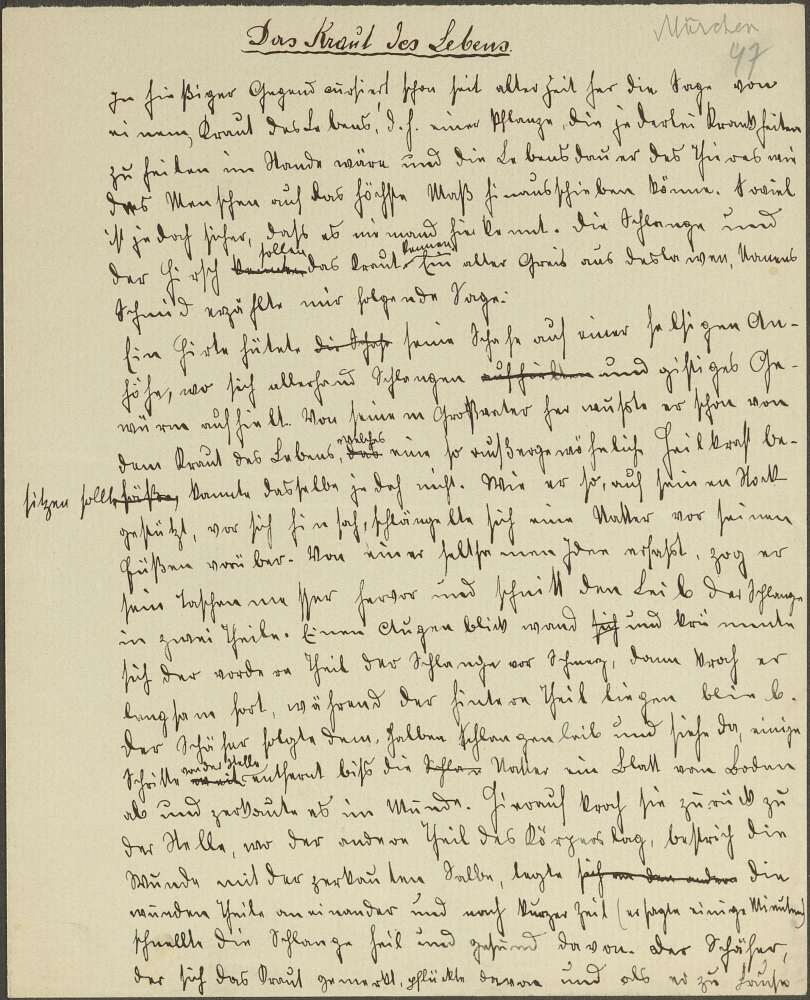 Märchen
47
Das Kraut des Lebens.
In hießiger Gegend cursiert schon seit alter Zeit her die Sage von
einem „Kraut des Lebens", d.h. einer Pflanze, die jederlei Krankheiten
zu heilen im Stande wäre und die Lebensdauer des Thieres wie
des Menschen auf das höchste Maß hinausschieben könne. Soviel
ist jedoch sicher, dass es niemand hier kennt. Die Schlange und
der Hirsch sollen das Kraut kennen. Ein alter Greis aus Deslawen, Namens
Schmid erzählte mir folgende Sage:
Ein Hirte hütete die Schafe seine Schafe auf einer felsigen An-
höhe, wo sich allerhand Schlangen aufhielten und giftiges Ge-
würm aufhielt. Von seinem Großvater her wusste er schon von
dem Kraut des Lebens, das welches eine so außergewöhnliche Heilkraft be-
sitzen sollte, kannte dasselbe jedoch nicht. Wie er so, auf seinen Stock
gestützt, vor sich hinsah, schlängelte sich eine Natter vor seinen
Füßen vorüber. Von einer seltsamen Idee erfasst, zog er
sein Taschenmesser hervor und schnitt den Leib der Schlange
in zwei Theile. Einen Augenblick wand sich und krümmte
sich der vordere Theil der Schlange vor Schmerz, dann kroch er
langsam fort, während der hintere Theil liegen blieb.
Der Schäfer folgte dem halben Schlangenleib und siehe da, einige
Schritte von der Stelle entfernt biss die Schlan Natter ein Blatt vom Boden
ab und zerkaute es im Munde. Hierauf kroch sie zurück zu
der Stelle, wo der andere Theil des Körpers lag, bestrich die
Wunde mit der zerkauten Salbe, legte sich an den andern die
wunden Theile aneinander und nach kurzer Zeit (er sagte einige Minuten)
schnellte die Schlange heil und gesund davon. Der Schäfer,
der sich das Kraut gemerkt, pflückte davon und als er zu Hause